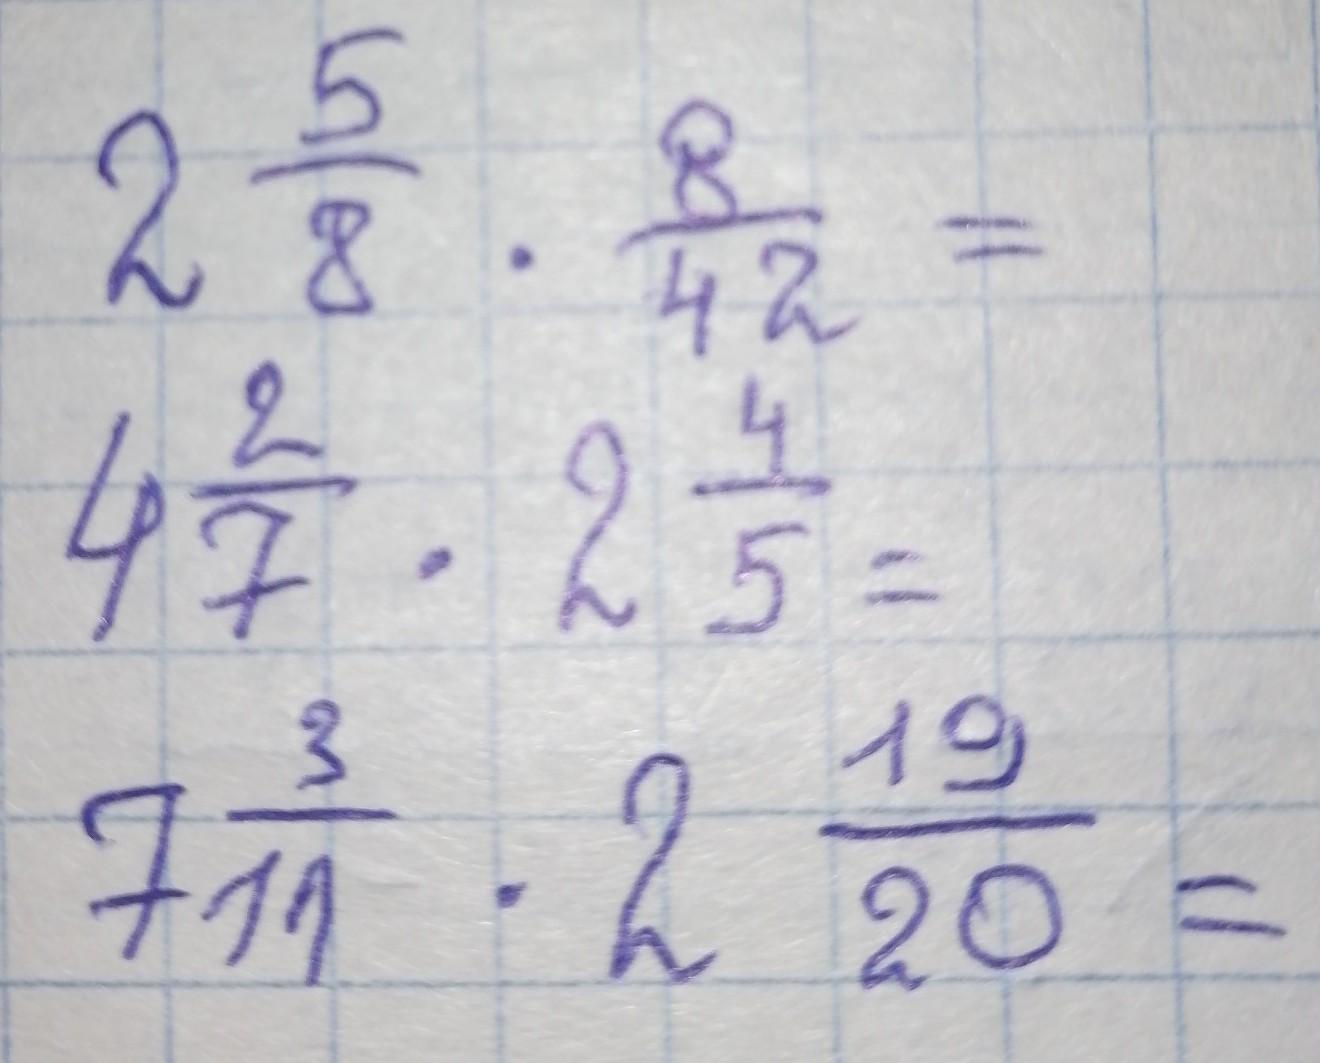 2 5/8 · 8/42 =
4 2/7 · 2 4/5 =
7 3/11 · 2 19/20 =